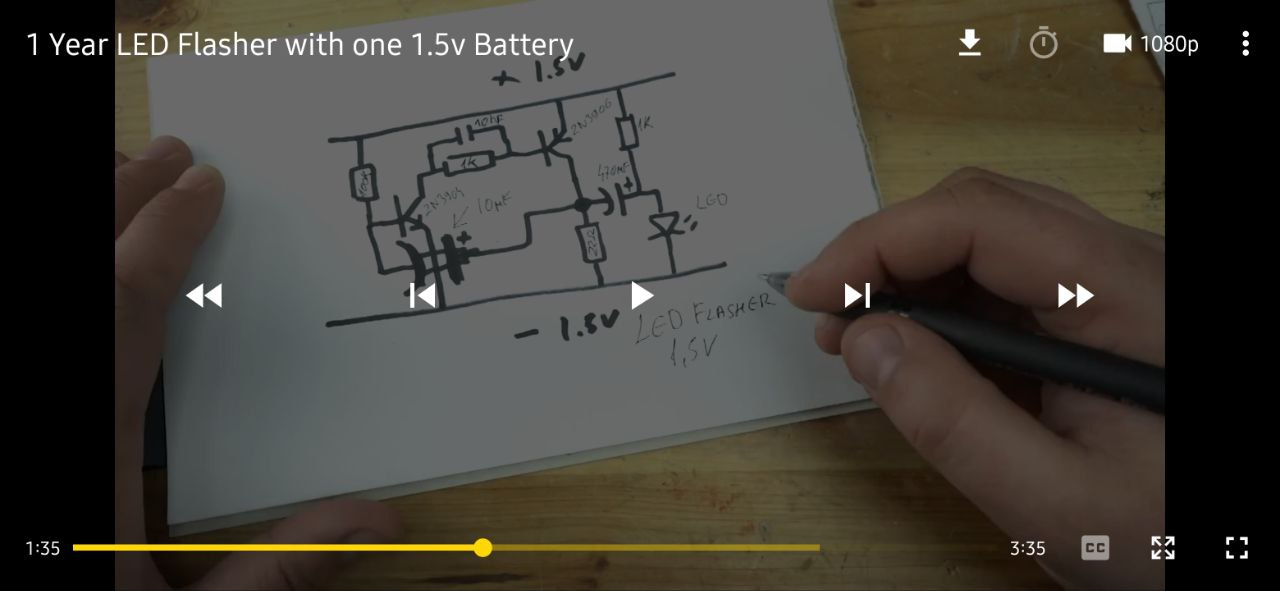 1 Year LED Flasher with one 1.5v Battery
1080p
+ 1.5V
10nF
2N3906
1K
1K
470µF
2N3904
10µF
LED
22Ω
- 1.5V
LED FLASHER
1,5V
1:35
3:35
CC